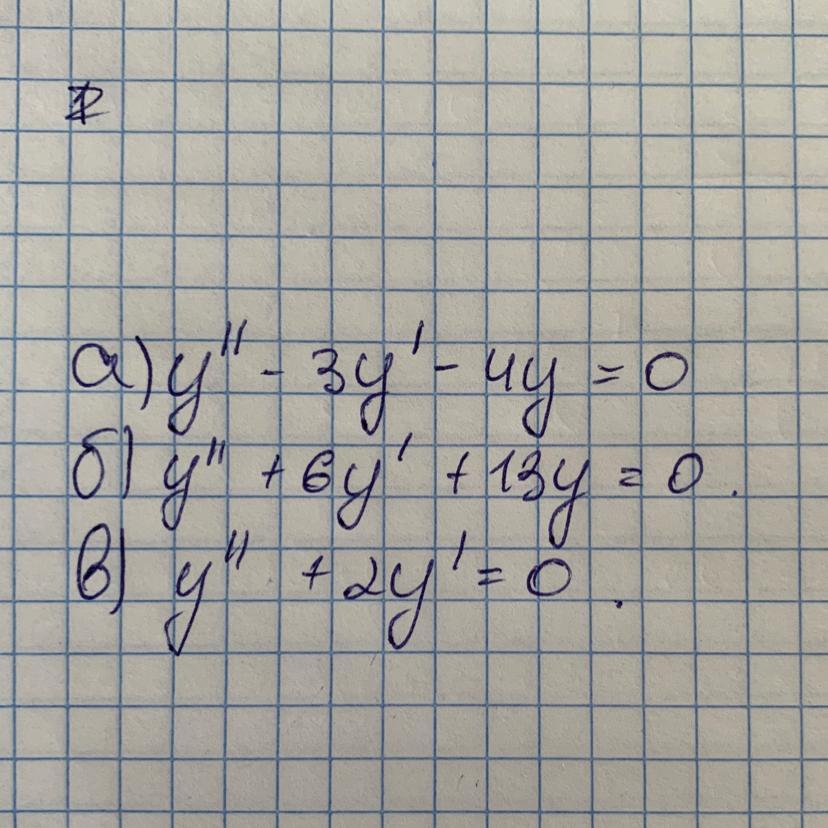 а) y'' - 3y' - 4y = 0
б) y'' + 6y' + 13y = 0.
в) y'' + 2y' = 0.